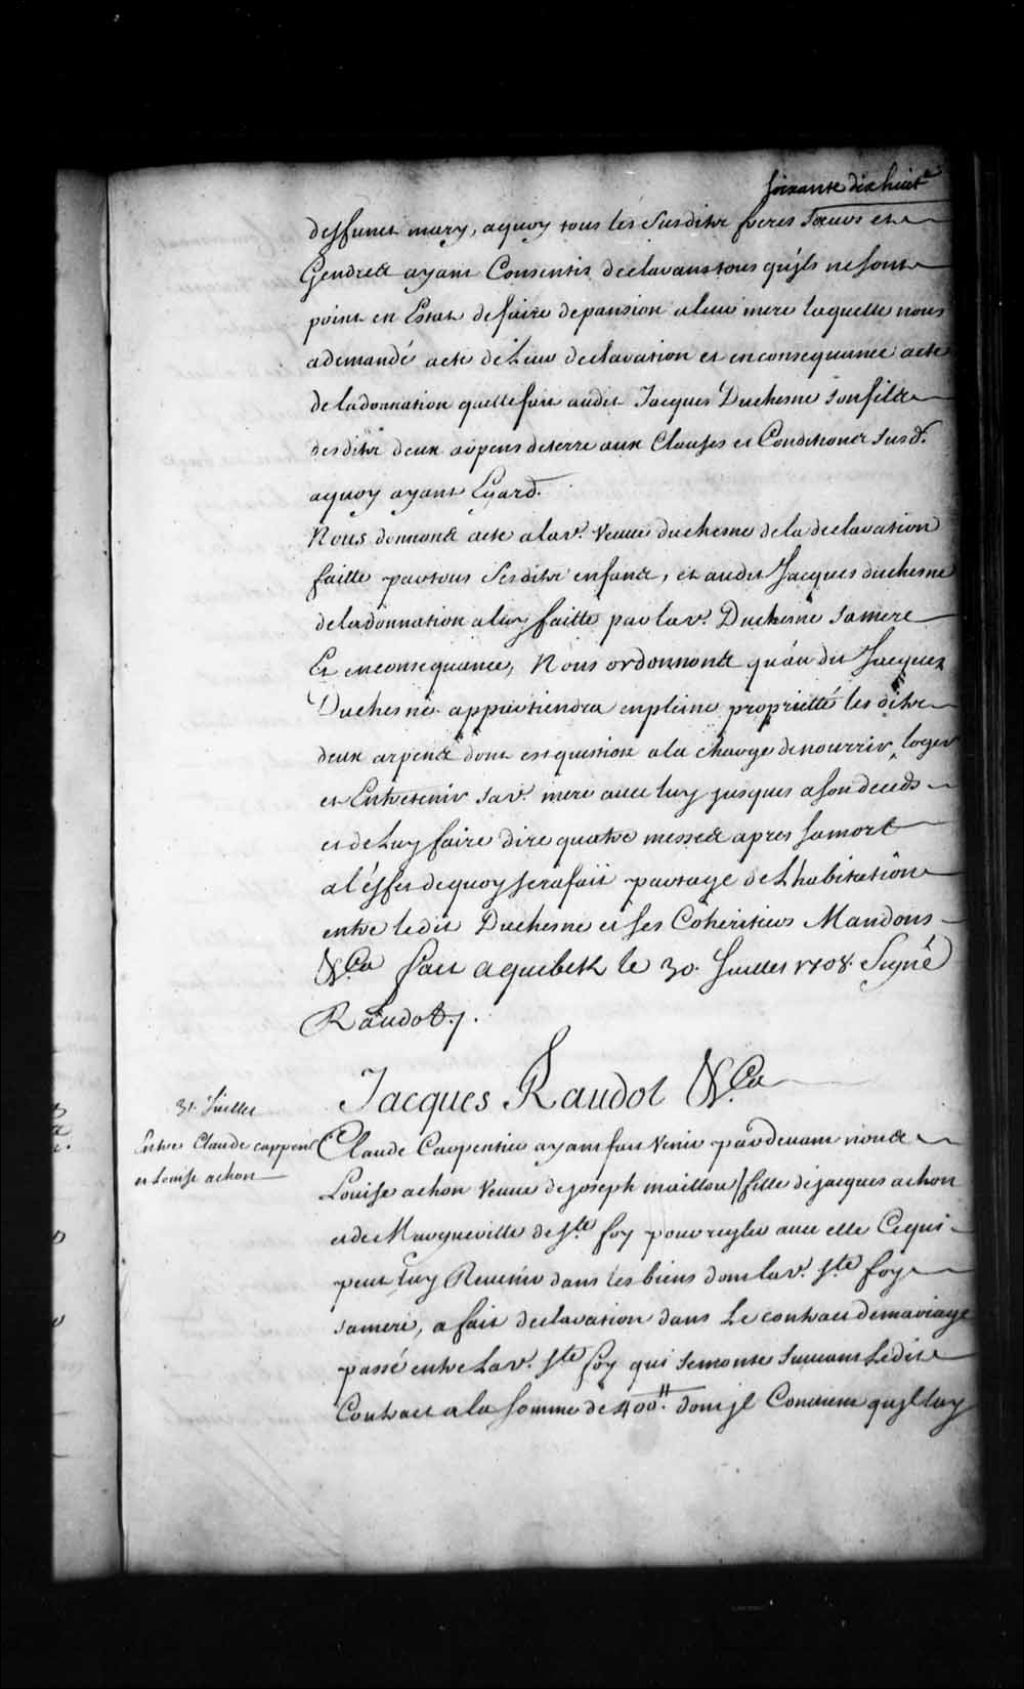 soixante dix huit.e
deffunct mary, aquoy tous les susdits freres soeurs et
Gendres ayant Consentis declarans tous quyls ne sont
point en Estat de faire de pansion a leur mere laquelle nous
a demandé acte de Leur declaration et en consequance acte
de la donnation quelle fait audit Jacques Duchesne son fils
desdits deux arpens de terre aux Clauses et Conditions susd.
aquoy ayant Egard.
Nous donnons acte a la v.e Veuve duchesne de la declaration
faitte par tous sesdits enfans, et audit Jacques duchesne
de la donnation a luy faitte par la v.e Duchesne sa mere
Et en consequance, Nous ordonnons qu'au dit Jacques
Duchesne appartiendra en pleine proprietté les dits
deux arpens dont est question a la charge de nourrir, loger
et Entretenir sa v.e mere avec luy jusques a son deceds
et de Luy faire dire quatre messes apres sa mort
a l'effet de quoy sera fait partage de L'habitation
entre ledit Duchesne et ses Coheritiers Mandons
&Ca fait a quebek le 30. Juillet 1708. Signé
Raudot./.
Jacques Raudot &Ca
31. Juillet
Entre Claude carpent
et Louise achon
Claude Carpentier ayant fait venir pardevant nous
Louise achon veuve de joseph maillou / fille de jacques achon
et de Marque ville de s.te foy pour regler avec elle Ce qui
peut luy Revenir dans les biens dont la v.e s.te foy
sa mere, a fait declaration dans Le contract de mariage
passé entre La v.e s.te foy qui se monte suivant Ledit
Contract a la somme de 400.tt dont jl Convient qujl luy